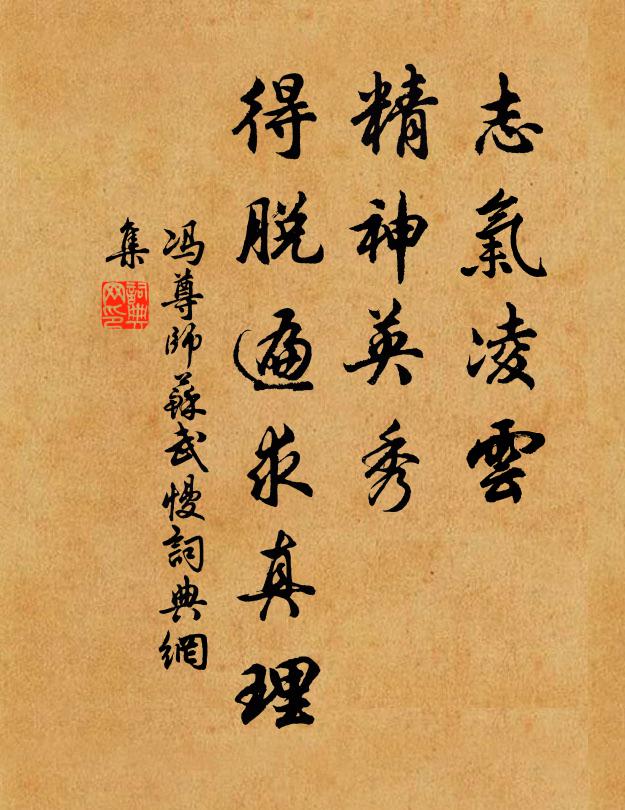 志氣凌雲
精神英秀
得脫遍求真理
冯尊師蘇武慢詞典網
集
詞典
网印